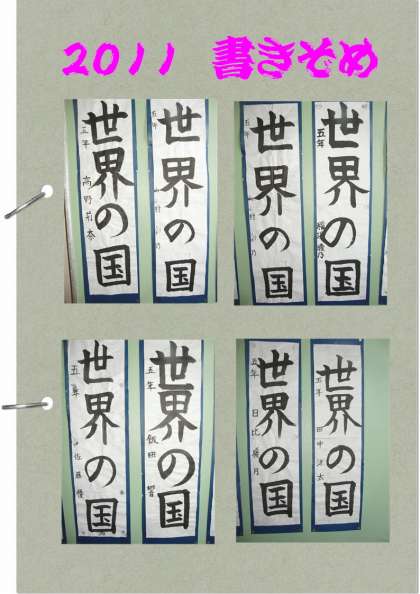 2011 書きぞめ
世界の国
五年 高野莉奈
世界の国
五年
世界の国
五年
世界の国
五年
世界の国
五年 佐藤優
世界の国
五年 飯田 響
世界の国
五年 日比 葉月
世界の国
五年 田中 洋太